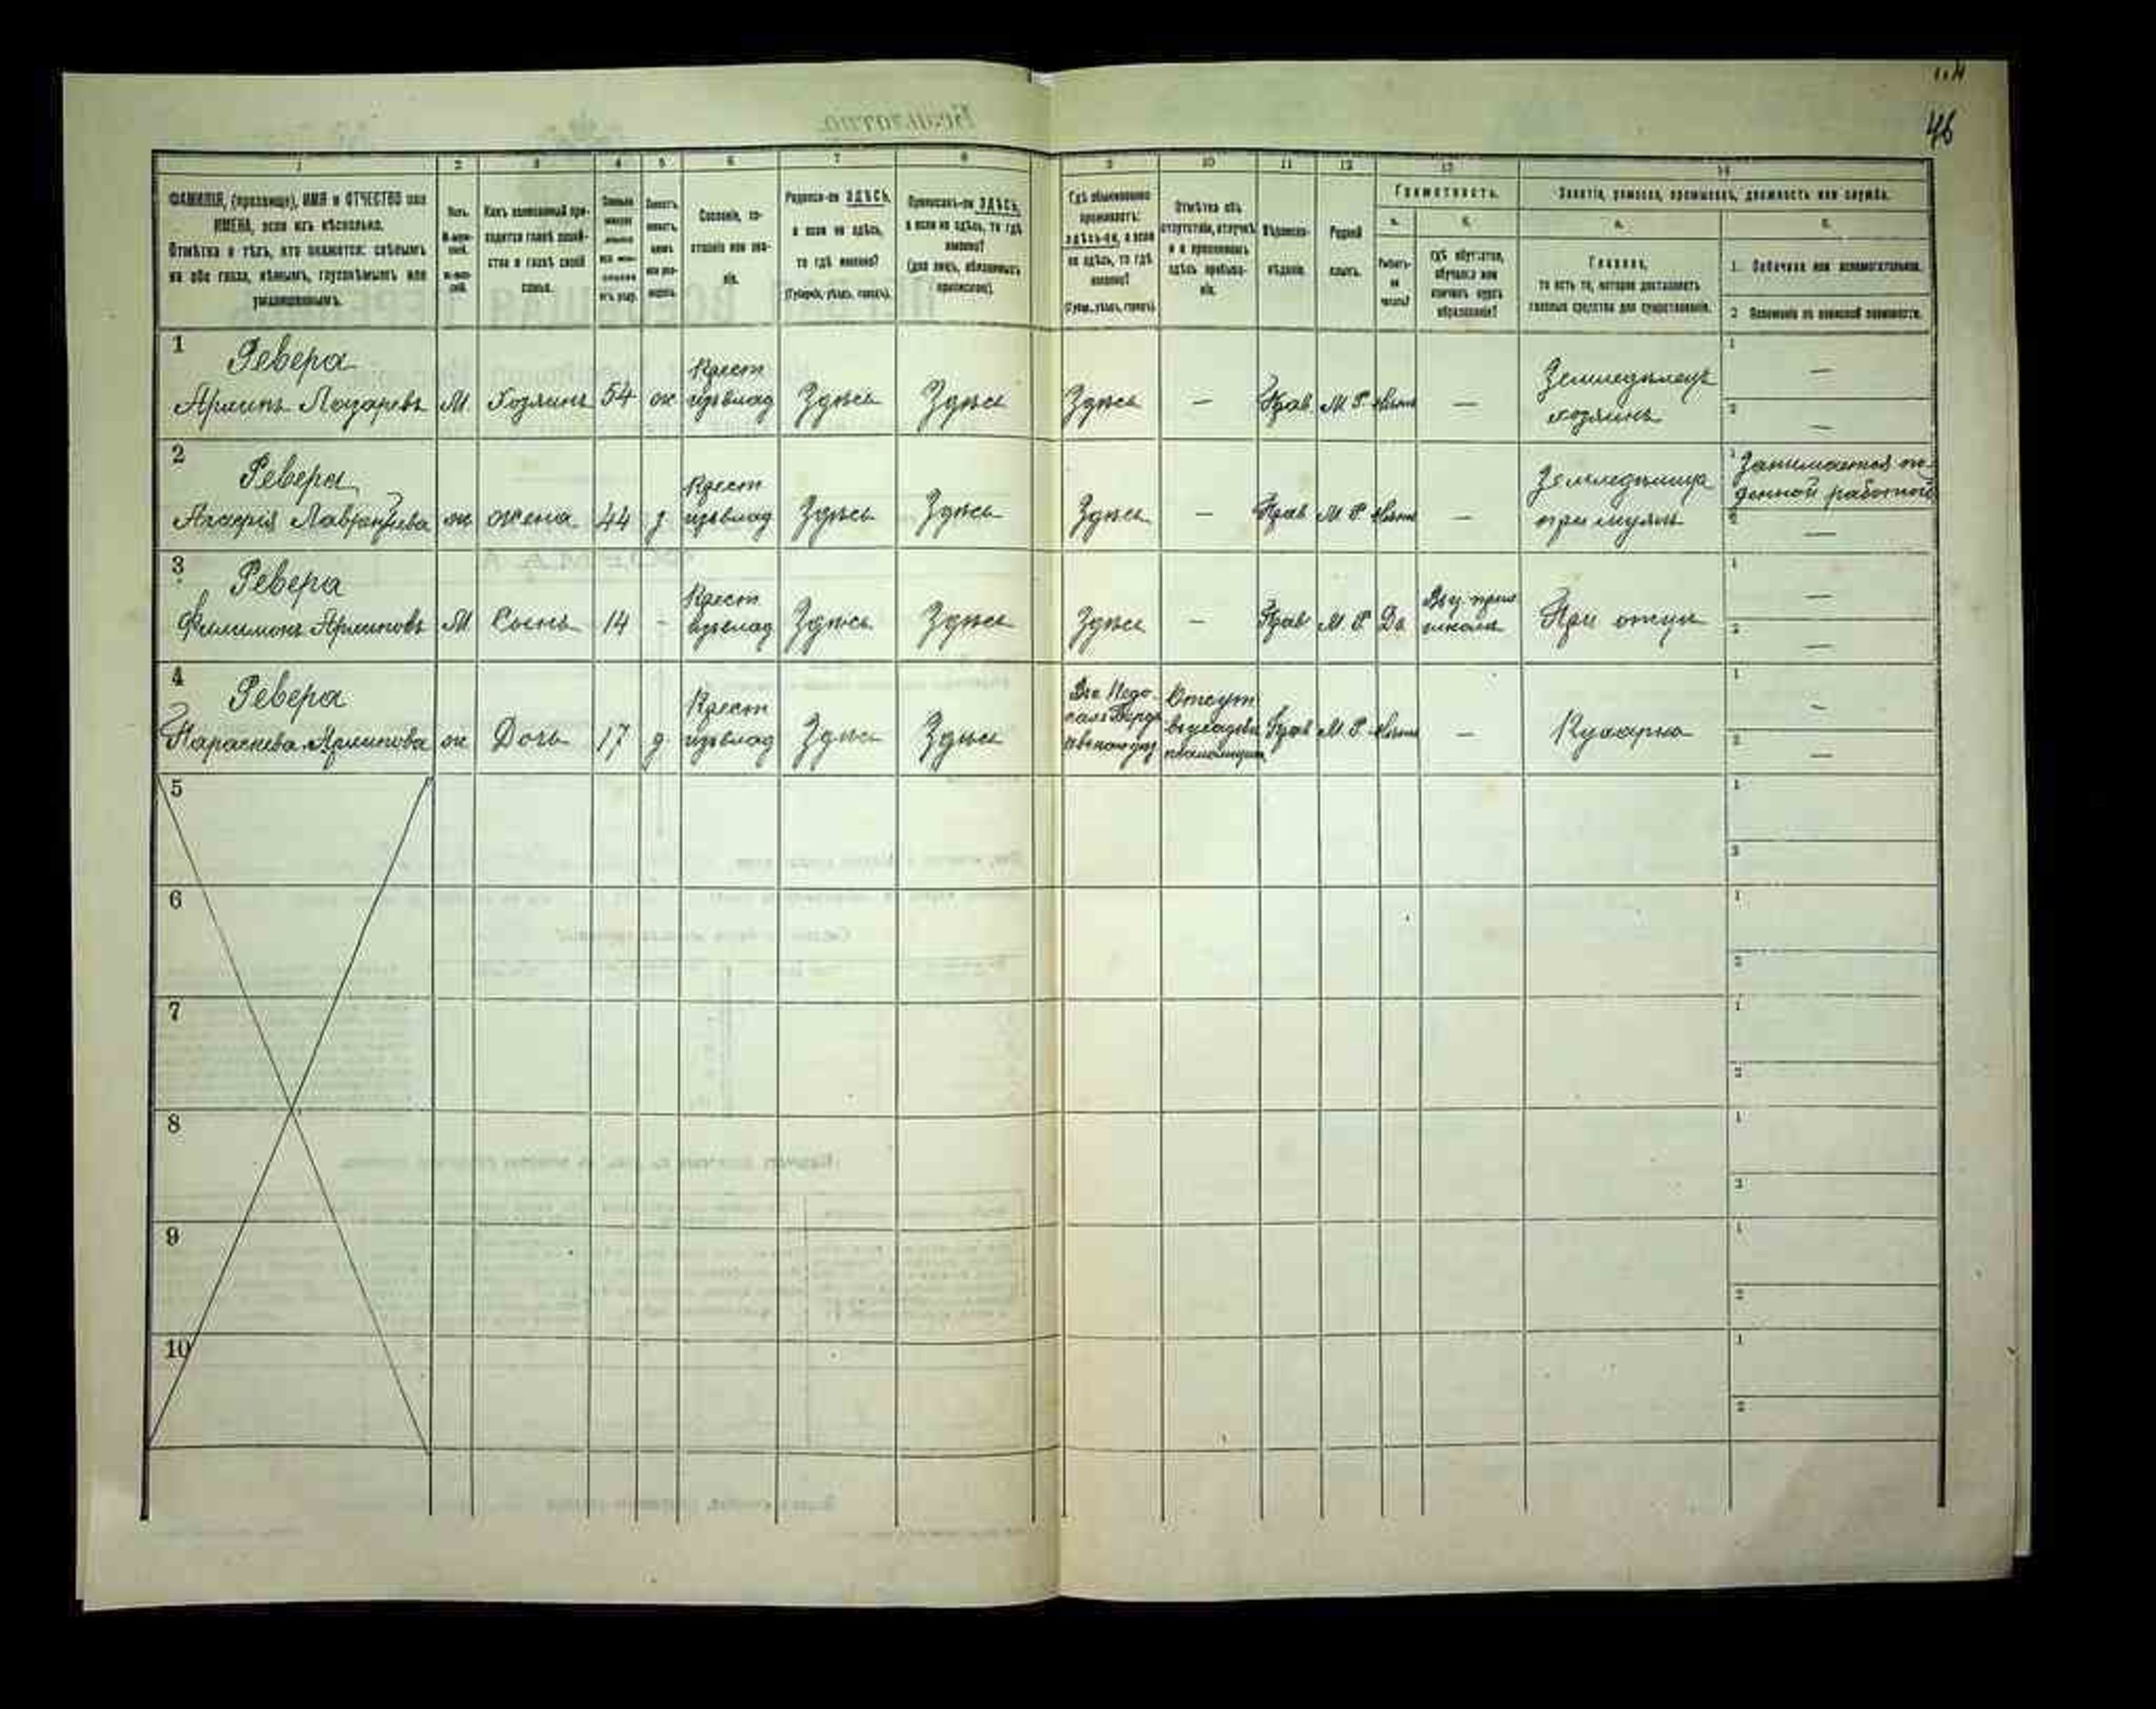 46
1 2 3 4 5 6 7 8 9 10 11 12 13 14
ФАМИЛІЯ, (прозвище), ИМЯ и ОТЧЕСТВО или
ИМЕНА, если ихъ нѣсколько.
Отмѣтка о тѣхъ, кто окажется: слѣпымъ
на оба глаза, нѣмымъ, глухонѣмымъ или
умалишеннымъ.
Какъ записанный при-
ходится главѣ хозяй-
ства и главѣ своей
семьи.
Сословіе, со-
стояніе или зва-
ніе.
Родился-ли ЗДѢСЬ,
а если не здѣсь,
то гдѣ именно?
(Губернія, уѣздъ, городъ).
Приписанъ-ли ЗДѢСЬ,
а если не здѣсь, то гдѣ
именно?
(для лицъ, обязанныхъ
припискою).
Гдѣ обыкновенно
проживаетъ:
здѣсь-ли, а если
не здѣсь, то гдѣ
именно?
(Губ., уѣздъ, городъ).
Отмѣтка объ
отсутствіи, отлучкѣ
и о временномъ
здѣсь пребыва-
ніи.
Вѣроиспо-
вѣданіе.
Родной
языкъ.
Грамотность.
а. б.
Умѣетъ-
ли
читать?
гдѣ обучается,
обучался или
кончилъ курсъ
образованія?
Занятіе, ремесло, промыселъ, должность или служба.
а. б.
Главное,
то есть то, которое доставляетъ
главныя средства для существованія.
1. Побочное или вспомогательное.
2. Положеніе по воинской повинности.
1 Ревера
Архипъ Лазаревъ М Хозяинъ 54 ж Крест изъ влад Здѣсь Здѣсь Здѣсь — Прав М. Р. Нѣтъ — Земледѣлецъ хозяинъ 1 — 2 —
2 Ревера
Агафія ж жена 44 з Крест изъ влад Здѣсь Здѣсь Здѣсь — Прав М. Р. Нѣтъ — при мужѣ 1 Занимается по-
денной работой 2 —
3 Ревера
Филимонъ Архиповъ М Сынъ 14 - Крест изъ влад Здѣсь Здѣсь Здѣсь — Прав М. Р. Да школѣ При отцѣ 1 — 2 —
4 Ревера
Параскева Архипова ж Дочь 17 д Крест изъ влад Здѣсь Здѣсь Отсут Прав М. Р. Нѣтъ — Кухарка 1 — 2 —
5 1 2
6 1 2
7 1 2
8 1 2
9 1 2
10 1 2